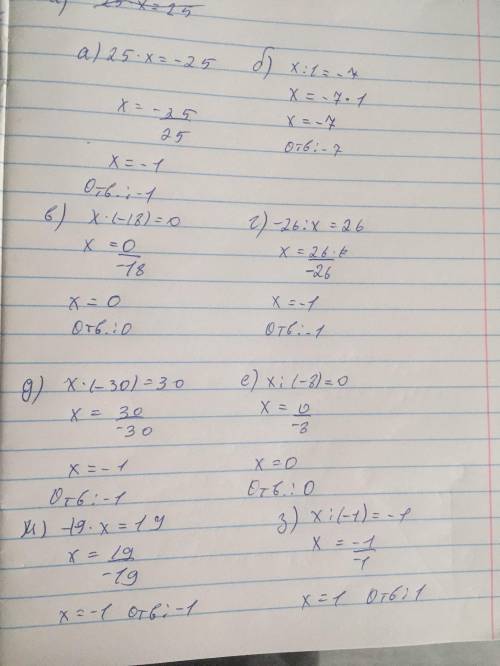 25·x=25
а) 25·x=-25
x=-25/25
x=-1
Отв.:-1
б) x:1=-7
x=-7·1
x=-7
Отв:-7
в) x·(-18)=0
x=0/-18
x=0
Отв.:0
г) -26:x=26
x=26·/-26
x=-1
Отв:-1
д) x·(-30)=30
x=30/-30
x=-1
Отв:-1
е) x:(-3)=0
x=0/-3
x=0
Отв.:0
-19·x=19
x=19/-19
x=-1 Отв:-1
з) x:(-1)=-1
x=-1/-1
x=1 Отв:1